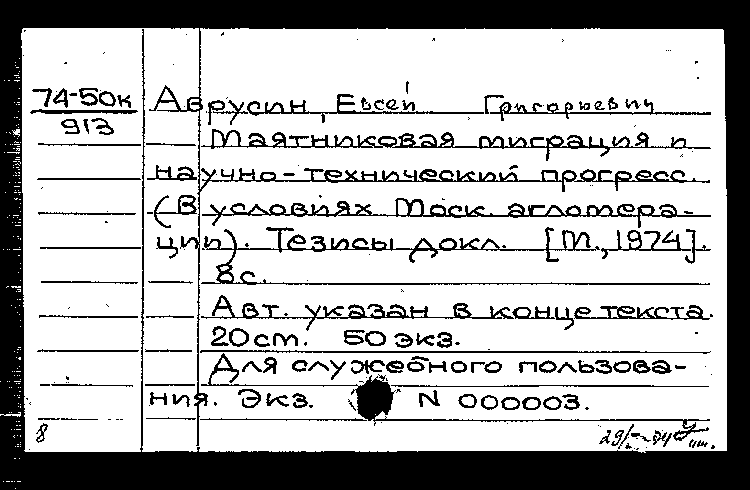 74-50к
913
Аврусин, Евсей Григорьевич
Маятниковая миграция и
научно-технический прогресс.
(В условиях Моск. агломера-
ции). Тезисы докл. [М., 1974].
8с.
Авт. указан в конце текста.
20 ст. 50 экз.
Для служебного пользова-
ния. Экз. N 000003.
8